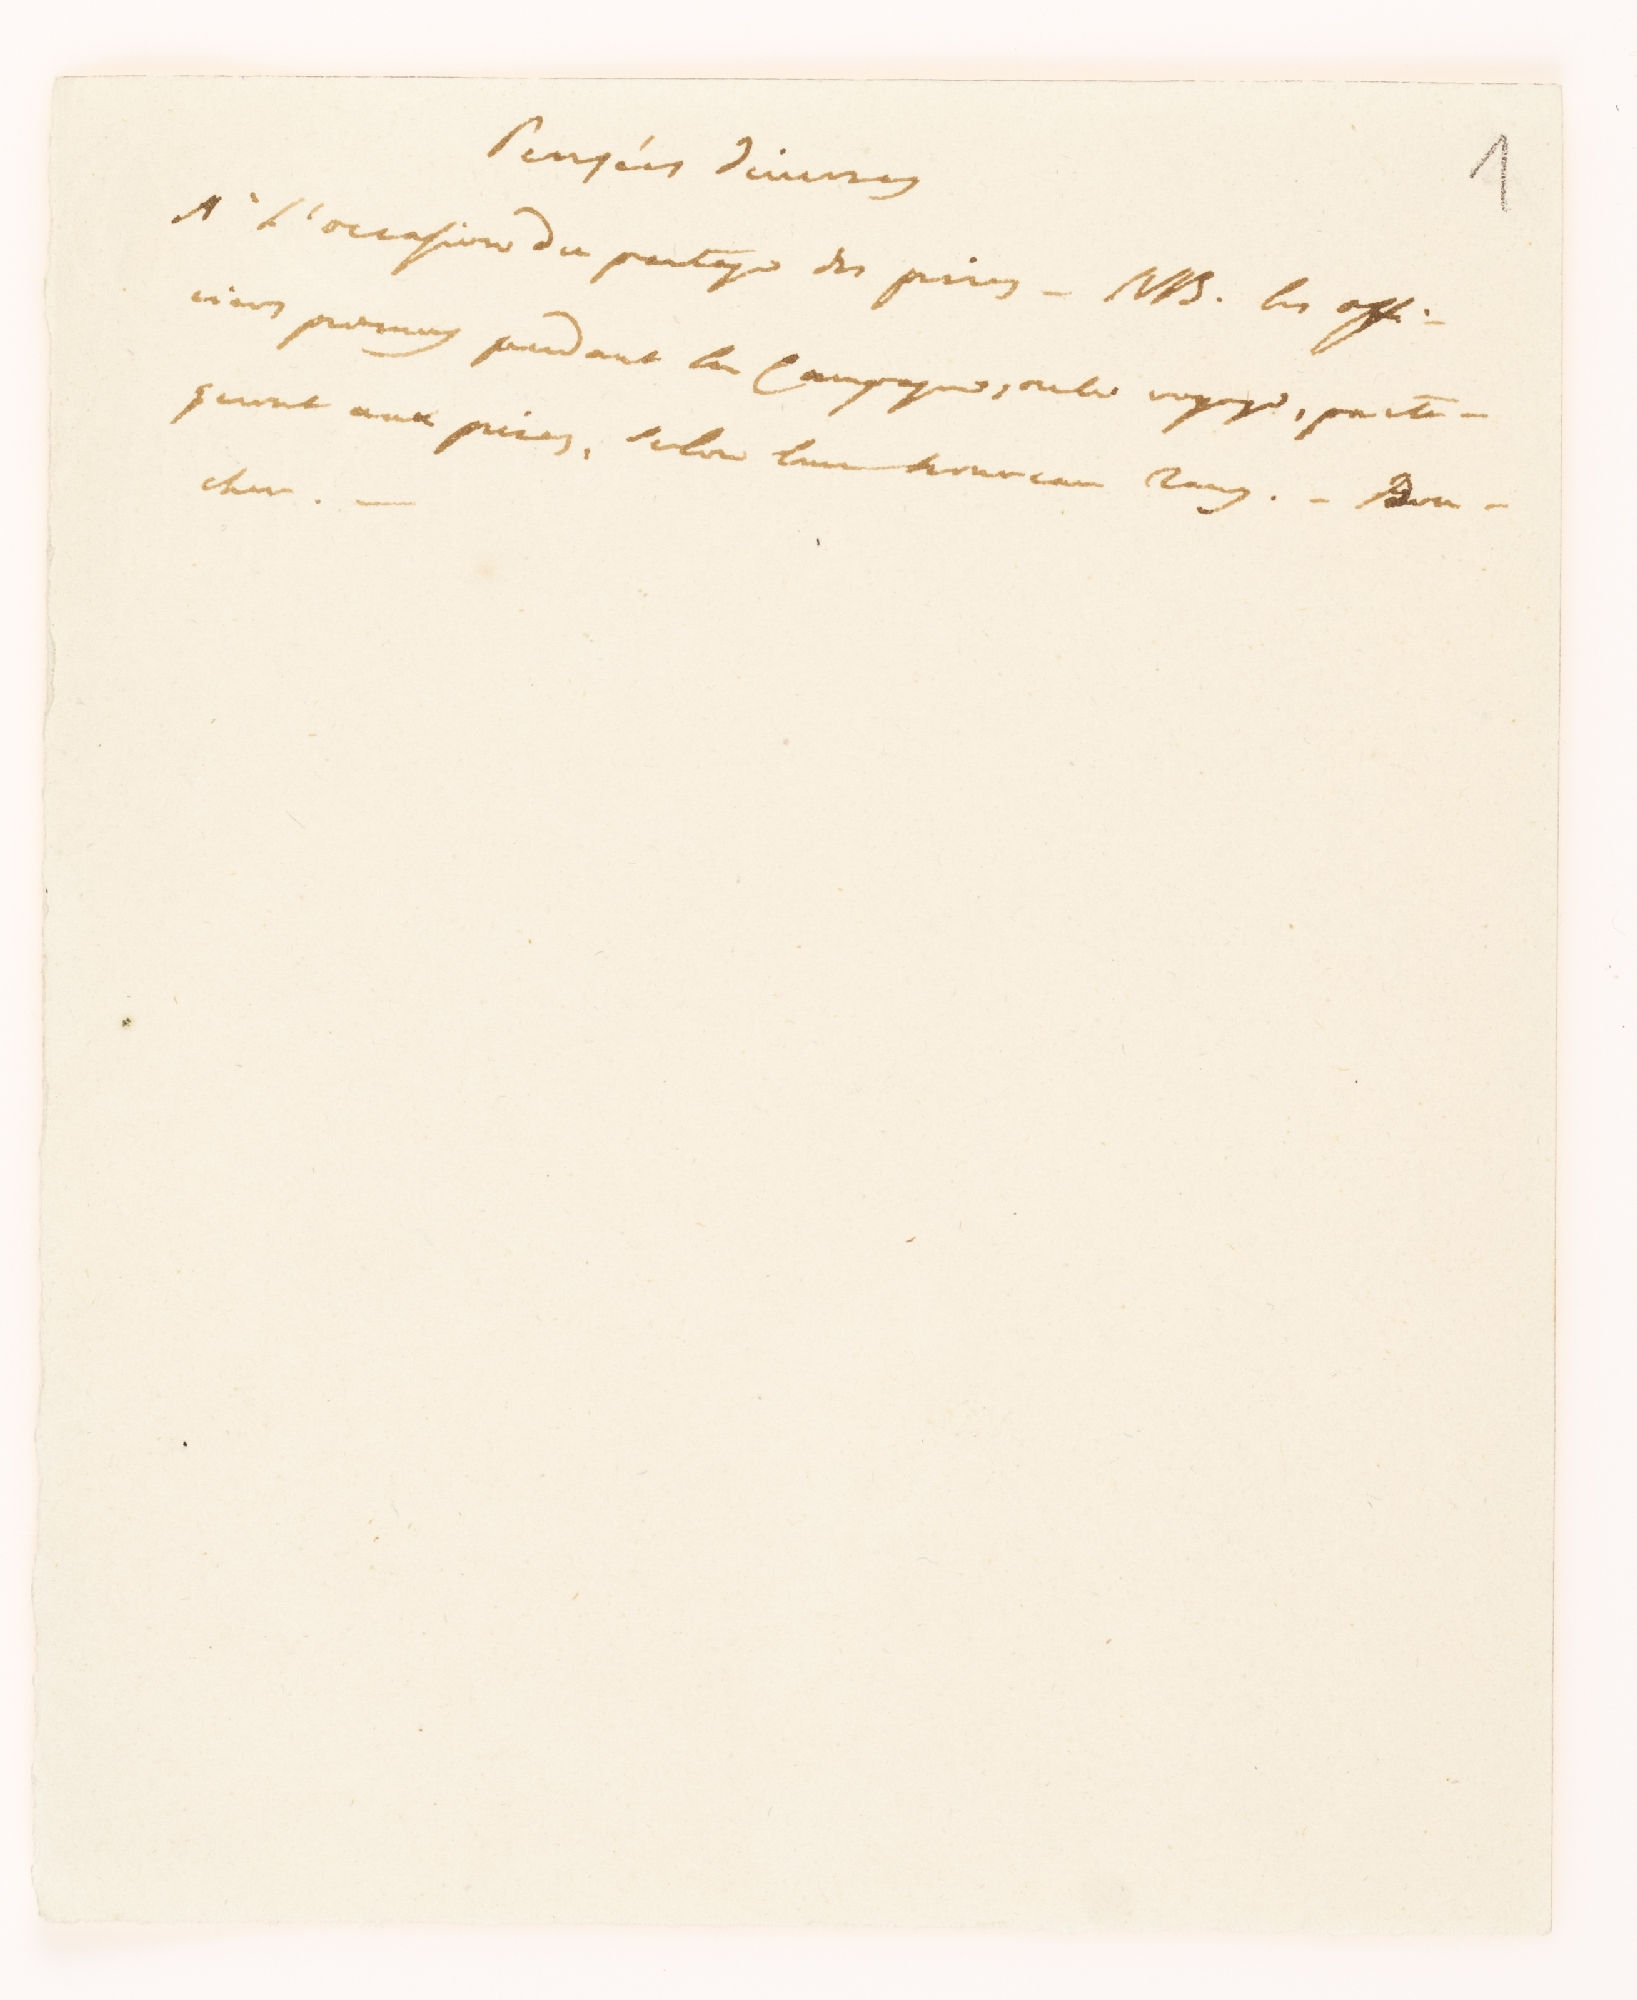 Pensées diverses
1
A l'occasion du partage des prises – NB. les offi-
ciers promus pendant la Campagne, ou le voyage, parta-
geront aux prises, selon leur nouveau rang. – Bou-
cher. —